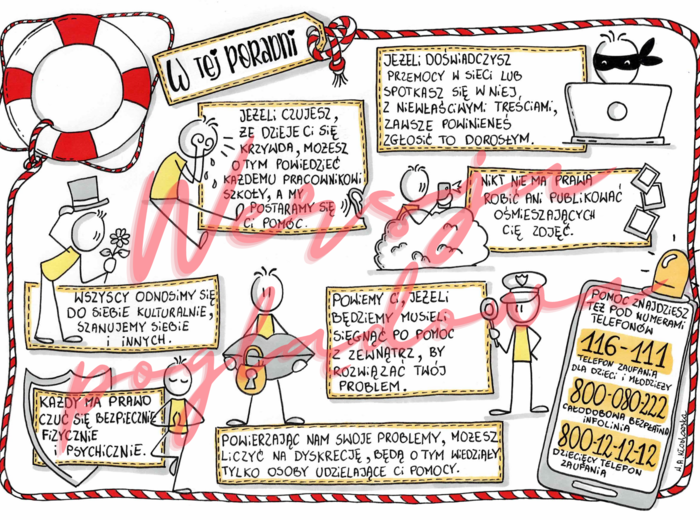 W TEJ PORADNI
JEŻELI DOŚWIADCZYSZ
PRZEMOCY W SIECI LUB
SPOTKASZ SIĘ W NIEJ,
Z NIEWŁAŚCIWYMI TREŚCIAMI,
ZAWSZE POWINIENEŚ
ZGŁOSIĆ TO DOROSŁYM.
JEŻELI CZUJESZ,
ŻE DZIEJE CI SIĘ
KRZYWDA, MOŻESZ
O TYM POWIEDZIEĆ
KAŻDEMU PRACOWNIKOWI
SZKOŁY, A MY
POSTARAMY SIĘ
CI POMÓC.
NIKT NIE MA PRAWA
ROBIĆ ANI PUBLIKOWAĆ
OŚMIESZAJĄCYCH
CIĘ ZDJĘĆ.
WSZYSCY ODNOSIMY SIĘ
DO SIEBIE KULTURALNIE,
SZANUJEMY SIEBIE
I INNYCH.
POWIEMY CI, JEŻELI
BĘDZIEMY MUSIELI
SIĘGNĄĆ PO POMOC
Z ZEWNĄTRZ, BY
ROZWIĄZAĆ TWÓJ
PROBLEM.
POMOC ZNAJDZIESZ
TEŻ POD NUMERAMI
TELEFONÓW
116-111
TELEFON ZAUFANIA
DLA DZIECI I MŁODZIEŻY
800-080-222
CAŁODOBOWA BEZPŁATNA
INFOLINIA
800-12-12-12
DZIECIĘCY TELEFON
ZAUFANIA
KAŻDY MA PRAWO
CZUĆ SIĘ BEZPIECZNIE
FIZYCZNIE
I PSYCHICZNIE.
POWIERZAJĄC NAM SWOJE PROBLEMY, MOŻESZ
LICZYĆ NA DYSKRECJĘ, BĘDĄ O TYM WIEDZIAŁY
TYLKO OSOBY UDZIELAJĄCE CI POMOCY.
Wersja
poglądowa